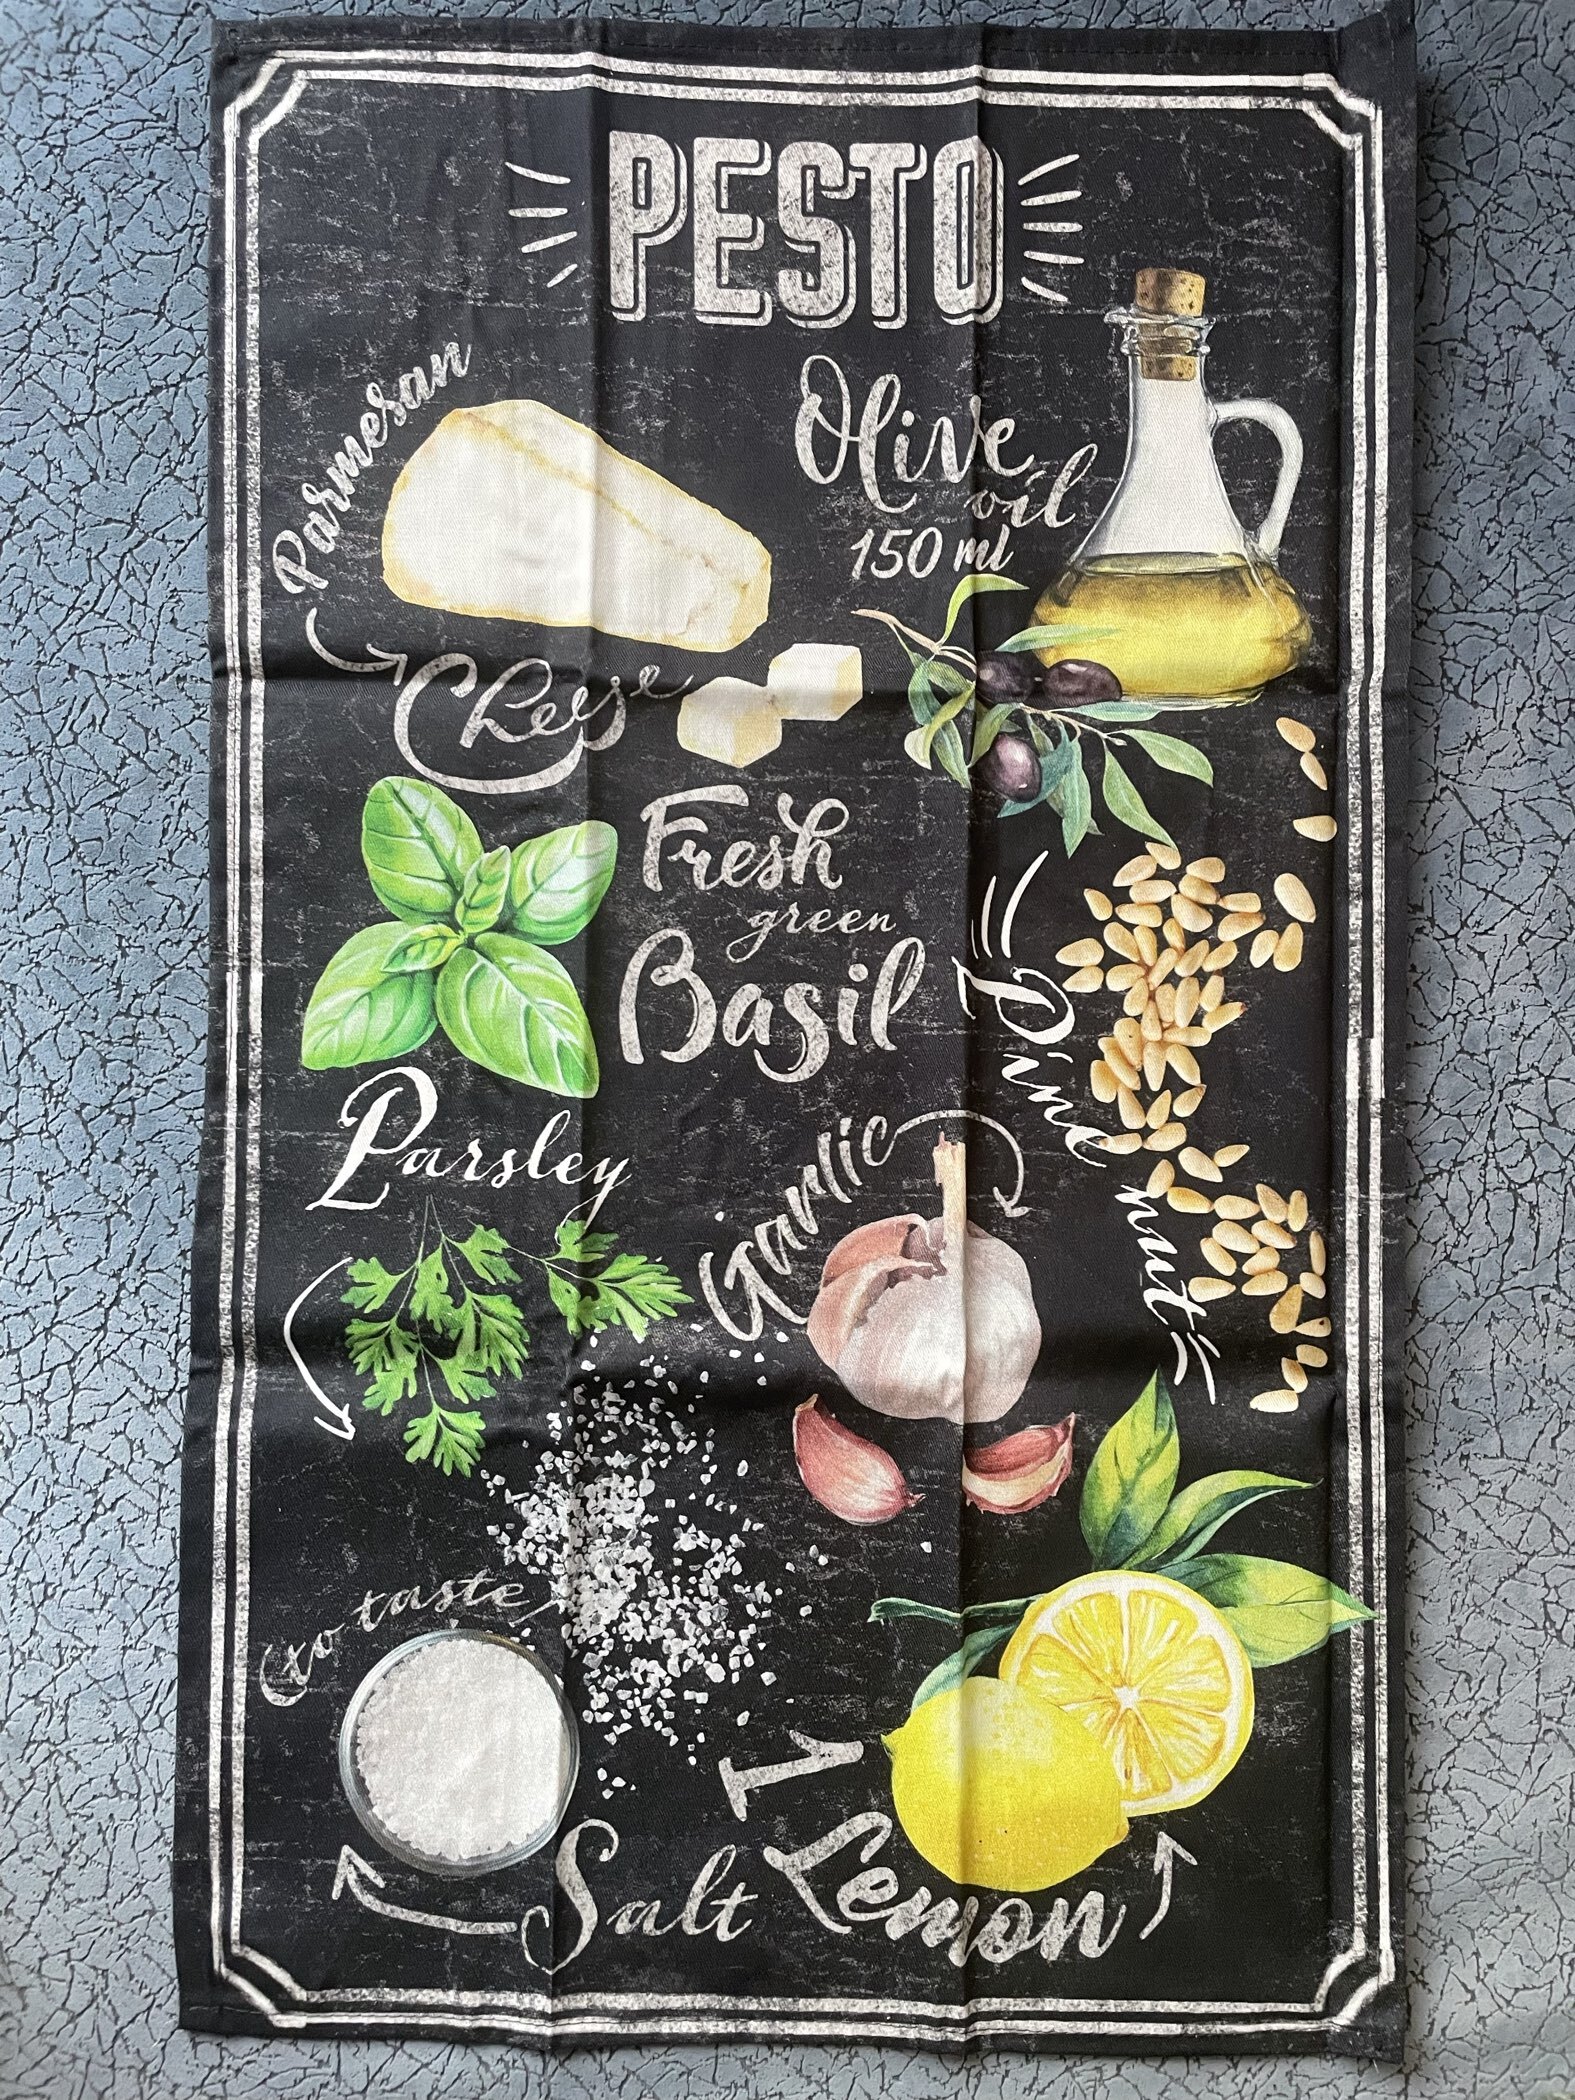 PESTO
Parmesan
Cheese
Olive
oil
150 ml
Fresh
green
Basil
Pine
nut
Parsley
Garlic
(to taste
Salt
1
Lemon